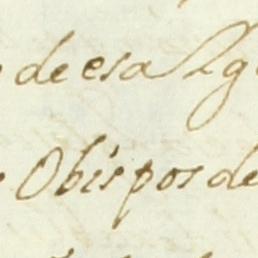 de esa Yg
Obispos de